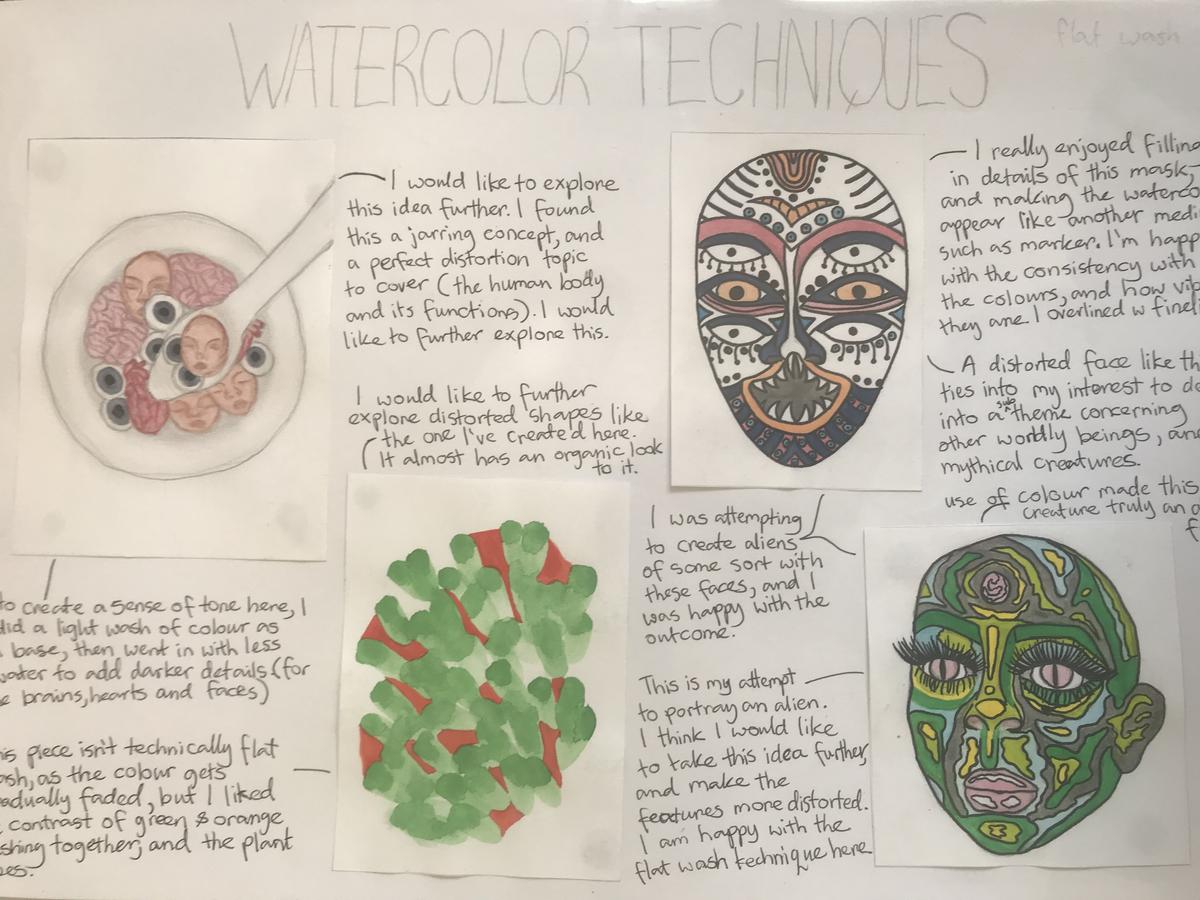 WATERCOLOR TECHNIQUES
flat wash
I would like to explore
this idea further. I found
this a jarring concept, and
a perfect distortion topic
to cover (the human body
and its functions). I would
like to further explore this.
I would like to further
explore distorted shapes like
the one I've created here.
It almost has an organic look
to it.
to create a sense of tone here, I
did a light wash of colour as
base, then went in with less
water to add darker details (for
brains, hearts and faces)
piece isn't technically flat
as the colour gets
faded, but I liked
contrast of green & orange
together, and the plant
I really enjoyed filling
in details of this mask,
and making the
appear like another
such as marker. I'm
with the consistency with
the colours, and how
they are. I overlined w
A distorted face like
ties into my interest to
into a sub theme concerning
other worldly beings,
mythical creatures.
use of colour made this
creature truly an
I was attempting
to create aliens
of some sort with
these faces, and I
was happy with the
outcome.
This is my attempt
to portray an alien.
I think I would like
to take this idea further,
and make the
features more distorted.
I am happy with the
flat wash technique here